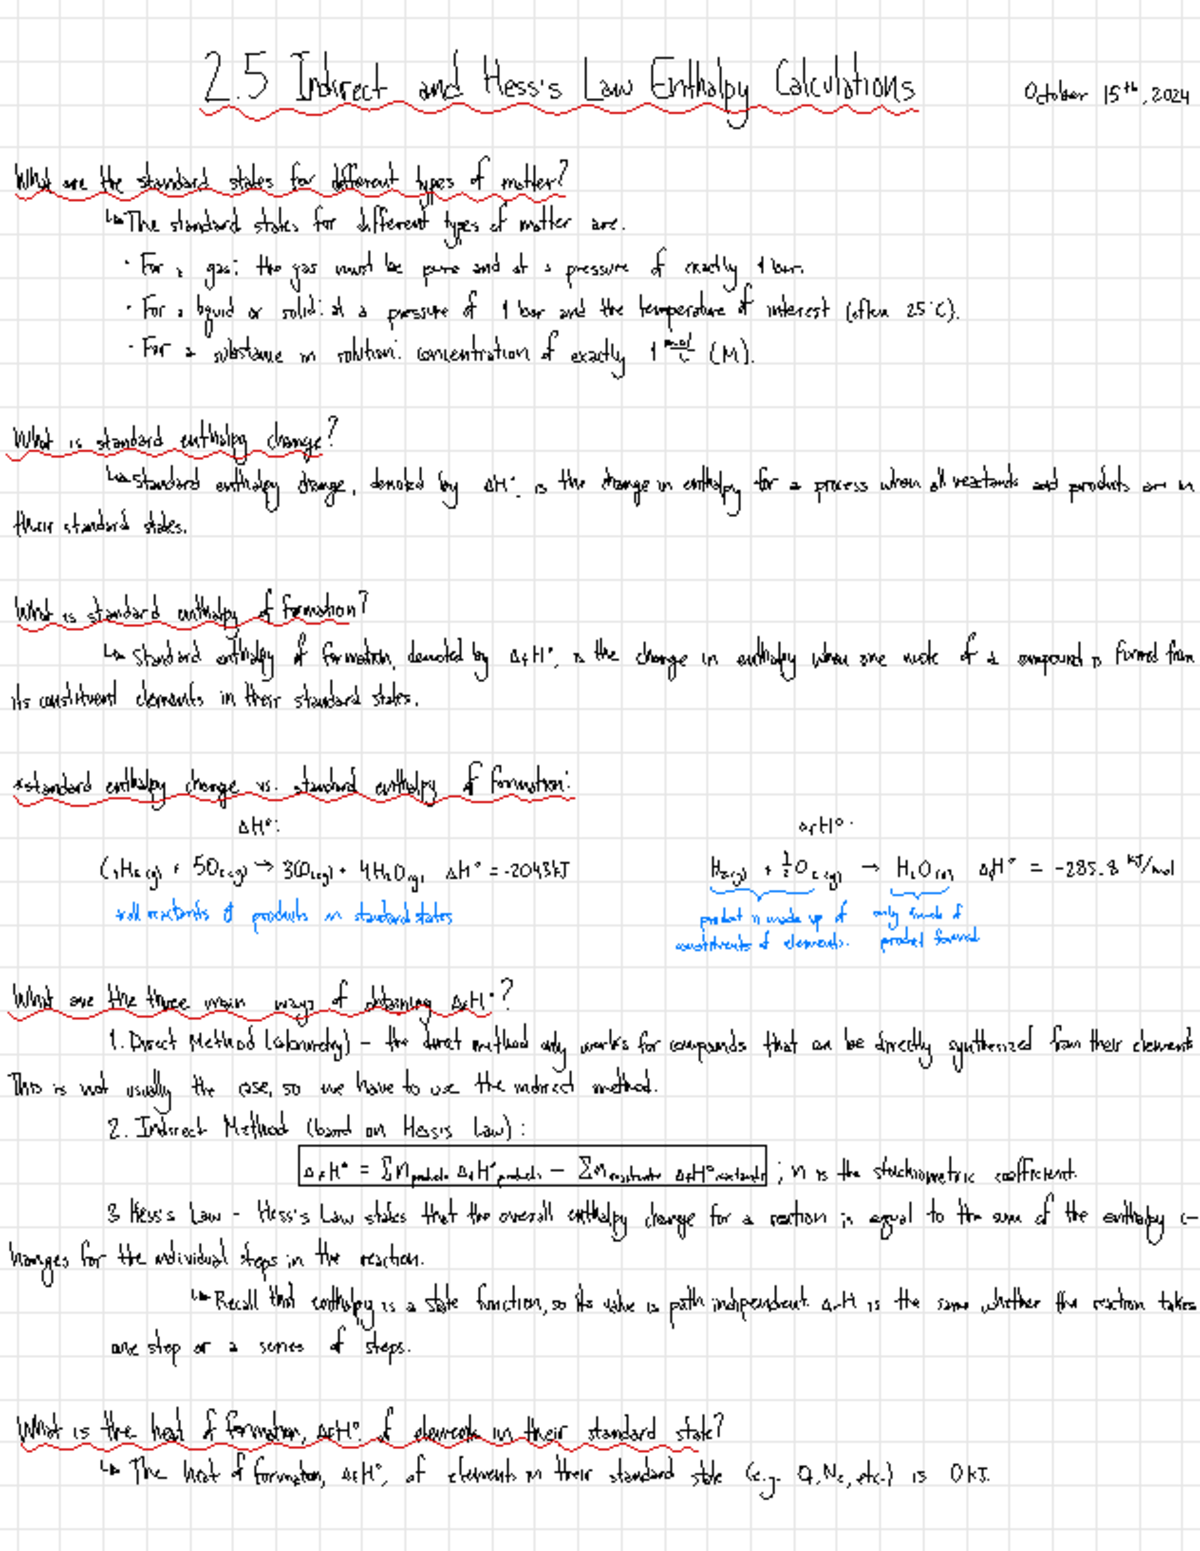 2.5 Indirect and Hess's Law Enthalpy Calculations
October 15th, 2024
What are the standard states for different types of matter?
↳ The standard states for different types of matter are:
· For a gas: the gas must be pure and at a pressure of exactly 1 bar.
· For a liquid or solid: at a pressure of 1 bar and the temperature of interest (often 25°C).
· For a substance in solution: concentration of exactly 1 mol/L (M).
What is standard enthalpy change?
↳ Standard enthalpy change, denoted by ΔH°, is the change in enthalpy for a process when all reactants and products are in
their standard states.
What is standard enthalpy of formation?
↳ Standard enthalpy of formation, denoted by ΔfH°, is the change in enthalpy when one mole of a compound is formed from
its constituent elements in their standard states.
*standard enthalpy change vs. standard enthalpy of formation:
ΔH°:
ΔfH°:
C₃H₈(g) + 5O₂(g) → 3CO₂(g) + 4H₂O(g) ΔH° = -2043kJ
H₂(g) + ½O₂(g) → H₂O(l) ΔfH° = -285.8 kJ/mol
*all reactants & products in standard states
product is made up of
constituents of elements.
only 1 mole of
product formed
What are the three main ways of obtaining ΔfH°?
1. Direct Method (calorimetry) - the direct method only works for compounds that can be directly synthesized from their elements
This is not usually the case, so we have to use the indirect method.
2. Indirect Method (based on Hess's Law):
ΔrH° = Σn products ΔfH° products - Σn reactants ΔfH° reactants ; n is the stoichiometric coefficient.
3 Hess's Law - Hess's Law states that the overall enthalpy change for a reaction is equal to the sum of the enthalpy c-
hanges for the individual steps in the reaction.
↳ Recall that enthalpy is a state function, so its value is path independent. ΔrH is the same whether the reaction takes
one step or a series of steps.
What is the heat of formation, ΔfH°, of elements in their standard state?
↳ The heat of formation, ΔfH°, of elements in their standard state (e.g. O₂, N₂, etc.) is 0 kJ.